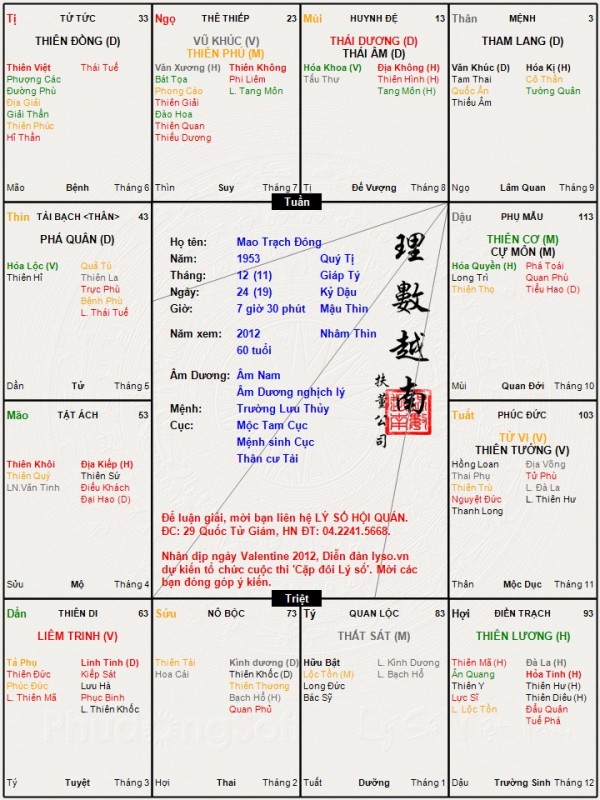 Tị TỬ TỨC 33
THIÊN ĐỒNG (D)
Thiên Việt Thái Tuế
Phượng Các
Đường Phù
Địa Giải
Giải Thần
Thiên Phúc
Hỉ Thần
Mão Bệnh Tháng 6
Ngọ THÊ THIẾP 23
VŨ KHÚC (V)
THIÊN PHỦ (M)
Văn Xương (H) Thiên Không
Bát Tọa Phi Liêm
Phong Cáo L. Tang Môn
Thiên Giải
Đào Hoa
Thiên Quan
Thiếu Dương
Thìn Suy Tháng 7
Mùi HUYNH ĐỆ 13
THÁI DƯƠNG (D)
THÁI ÂM (D)
Hóa Khoa (V) Địa Không (H)
Tấu Thư Thiên Hình (H)
Tang Môn (H)
Tị Đế Vượng Tháng 8
Thân MỆNH 3
THAM LANG (D)
Văn Khúc (D) Hóa Kị (H)
Tam Thai Cô Thần
Quốc Ấn Tướng Quân
Thiếu Âm
Ngọ Lâm Quan Tháng 9
Tuần
Thìn TÀI BẠCH <THÂN> 43
PHÁ QUÂN (D)
Hóa Lộc (V) Quả Tú
Thiên Hỉ Thiên La
Trực Phù
Bệnh Phù
L. Thái Tuế
Dần Tử Tháng 5
Họ tên: Mao Trạch Đông
Năm: 1953 Quý Tị
Tháng: 12 (11) Giáp Tý
Ngày: 24 (19) Kỷ Dậu
Giờ: 7 giờ 30 phút Mậu Thìn
Năm xem: 2012 Nhâm Thìn
60 tuổi
Âm Dương: Âm Nam
Âm Dương nghịch lý
Mệnh: Trường Lưu Thủy
Cục: Mộc Tam Cục
Mệnh sinh Cục
Thân cư Tài
理數越南
扶董公司
Để luận giải, mời bạn liên hệ LÝ SỐ HỘI QUÁN.
ĐC: 29 Quốc Tử Giám, HN ĐT: 04.2241.5668.
Nhân dịp ngày Valentine 2012, Diễn đàn lyso.vn
dự kiến tổ chức cuộc thi 'Cặp đôi Lý số'. Mời các
bạn đóng góp ý kiến.
Dậu PHỤ MẪU 113
THIÊN CƠ (M)
CỰ MÔN (M)
Hóa Quyền (H) Phá Toái
Long Trì Quan Phù
Thiên Thọ Tiểu Hao (D)
Mùi Quan Đới Tháng 10
Mão TẬT ÁCH 53
Thiên Khôi Địa Kiếp (H)
Thiên Quý Thiên Sứ
LN.Văn Tinh Điếu Khách
Đại Hao (D)
Sửu Mộ Tháng 4
Tuất PHÚC ĐỨC 103
TỬ VI (V)
THIÊN TƯỚNG (V)
Hồng Loan Địa Võng
Thai Phụ Tử Phù
Thiên Trù L. Đà La
Nguyệt Đức L. Thiên Hư
Thanh Long
Thân Mộc Dục Tháng 11
Triệt
Dần THIÊN DI 63
LIÊM TRINH (V)
Tả Phụ Linh Tinh (D)
Thiên Đức Kiếp Sát
Phúc Đức Lưu Hà
L. Thiên Mã Phục Binh
L. Thiên Khốc
Tý Tuyệt Tháng 3
Sửu NÔ BỘC 73
Thiên Tài Kình dương (D)
Hoa Cái Thiên Khốc (D)
Thiên Thương
Bạch Hổ (H)
Quan Phủ
Hợi Thai Tháng 2
Tý QUAN LỘC 83
THẤT SÁT (M)
Hữu Bật L. Kình Dương
Lộc Tồn (M) L. Bạch Hổ
Long Đức
Bác Sỹ
Tuất Dưỡng Tháng 1
Hợi ĐIỀN TRẠCH 93
THIÊN LƯƠNG (H)
Thiên Mã (H) Đà La (H)
Ân Quang Hỏa Tinh (H)
Thiên Y Thiên Hư (H)
Lực Sĩ Thiên Diêu (H)
L. Lộc Tồn Đẩu Quân
Tuế Phá
Dậu Trường Sinh Tháng 12